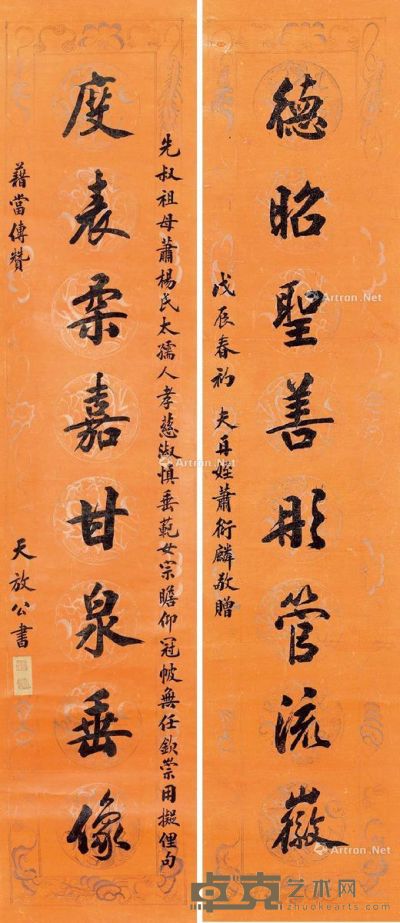 德昭聖善彤管流徽
度表柔嘉甘泉垂像
戊辰春初 夫再姪蕭衍麟敬贈
先叔祖母蕭楊氏太孺人孝慈淑慎垂範女宗瞻仰冠帔無任欽崇用擬俚句
藉當傳贊
天放公書
Artron.Net
Artron.Net
Artron.Net
Artron.Net
卓克艺术网
www.zhuokearts.com